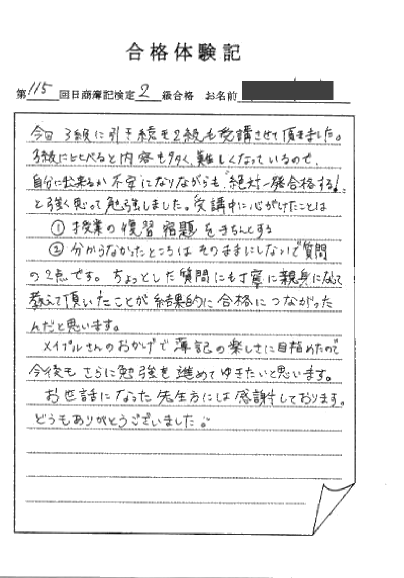 合格体験記
第115回日商簿記検定2級合格 お名前
今回 3級に引き続き2級も受講させて頂きました。
3級にくらべると内容も多く、難しくなっているので、
自分に出来るか不安になりながらも“絶対一発合格する!”
と強く思って勉強しました。受講中に心がけたことは
① 授業の復習 宿題をきちんとする
② 分からなかったところはそのままにしないで質問
の2点です。ちょっとした質問にも丁寧に親身になって
教えて頂いたことが結果的に合格につながった
んだと思います。
メイプルさんのおかげで簿記の楽しさに目指めたので
今後もさらに勉強を進めてゆきたいと思います。
お世話になった先生方には感謝しております。
どうもありがとうございました。